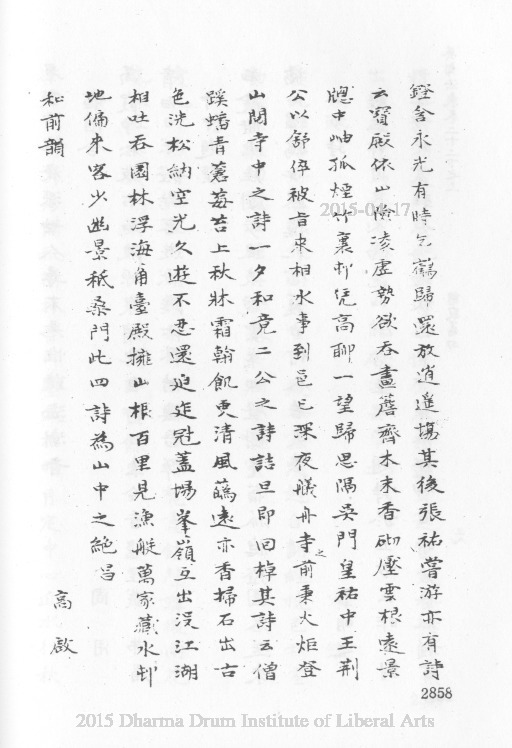 鐙含永光有時乞鶴歸還放逍遙塲其後張祐嘗游亦有詩
云寳殿依山險凌虛勢欲吞畫簷齊木末香砌壓雲根遠景
牕中岫孤煙竹裏邨凭高聊一望歸思隔吳門皇祐中王荆
公以舒倅被旨来相水事到邑已深夜艤舟寺之前秉火炬登
山閱寺中之詩一夕和竟二公之詩詰旦即回棹其詩云僧
蹊蟠青蒼莓苔上秋牀霜翰飢更清風蘤遠亦香掃石出古
色洗松納空光久遊不忍還迫迮冠蓋塲峯嶺互出没江湖
相吐吞園林浮海角臺殿擁山根百里見漁艇萬家藏水邨
地偏来客少幽景秪桑門此四詩為山中之絶昌
和前韻 高啟
2858
2015-04-17
2015 Dharma Drum Institute of Liberal Arts